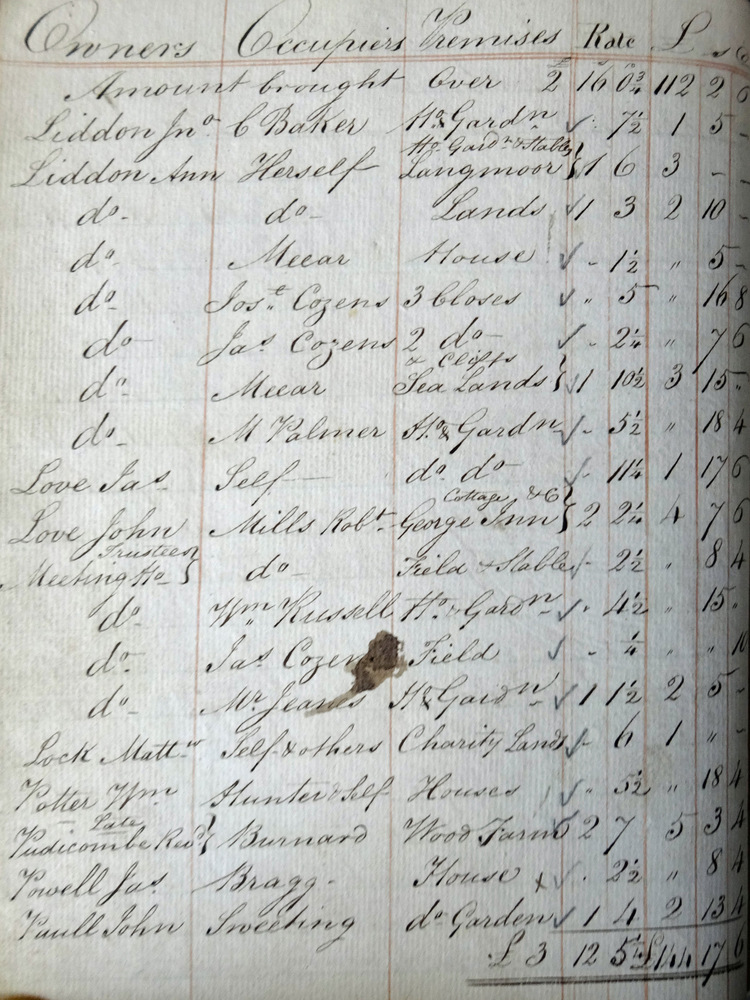 Owners Occupiers Premises Rate £ s
Amount brought Over 2 16 0¾ 112 2 6
Liddon Jnº C Baker Hº & Gardn ✓ " 7½ 1 5 -
Hº Gardn & Stables
Liddon Ann Herself Langmoor } 1 6 3 - -
dº - dº - Lands ✓ 1 3 2 10 -
dº - Mecar House ✓ - 1½ " 5 -
dº - Josʰ Cozens 3 Closes ✓ " 5 " 16 8
dº - Jaˢ Cozens 2 dº - ✓ - 2¼ " 7 6
& Clifts
dº - Mecar Sea Lands } ✓ 1 10½ 3 15 "
dº - M Palmer Hº & Gardn ✓ - 5½ " 18 4
Love Jaˢ Self - dº dº ✓ - 11¼ 1 17 6
Cottage &c
Love John Mills Robᵗ George Inn } 2 2¼ 4 7 6
Trustees
Meeting Hº } dº - Field & Stable ✓ - 2½ " 8 4
dº - Wm Russell Hº & Gardn - ✓ " 4½ " 15 "
dº - Jaˢ Cozens Field ✓ - ¼ " " 10
dº - Mr Jeanes Hº & Gardn - ✓ 1 1½ 2 5 -
Lock Mattʷ Self & others Charity Lands ✓ - 6 1 " -
Potter Wm Hunter & Self Houses ✓ " 5½ " 18 4
Late
Pudicombe Revᵈ } Burnard Wood Farm ✓ 2 7 5 3 4
Powell Jaˢ Bragg - House x ✓ " 2½ " 8 4
Paull John Sweeting dº Garden ✓ 1 4 2 13 4
£ 3 12 5¼ £144 17 6